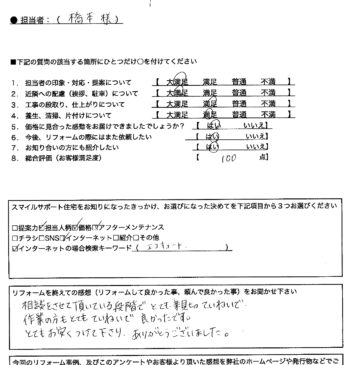 ● 担当者：（ 橋本 様 ）
■下記の質問の該当する箇所にひとつだけ○を付けてください
1．担当者の印象・対応・提案について 【 大満足 満足 普通 不満 】
2．近隣への配慮（挨拶、駐車）について 【 大満足 満足 普通 不満 】
3．工事の段取り、仕上がりについて 【 大満足 満足 普通 不満 】
4．養生、清掃、片付けについて 【 大満足 満足 普通 不満 】
5．価格に見合った感動をお届けできましたでしょうか？ 【 はい いいえ 】
6．今後、リフォームの際にはまた依頼したい 【 はい いいえ 】
7．お知り合いの方にも紹介したい 【 はい いいえ 】
8．総合評価（お客様満足度） 【 100 点】
スマイルサポート住宅をお知りになったきっかけ、お選びになった決めてを下記項目から３つお選びください
□提案力☑担当人柄☑価格☑アフターメンテナンス
□チラシ□SNS☑インターネット□紹介□その他
☑インターネットの場合検索キーワード（ エコキュート ）
リフォームを終えての感想（リフォームして良かった事、頼んで良かった事）をお聞かせ下さい
相談をさせて頂いている段階でとても親切ていねいで
作業の方もとてもていねいで良かったです。
とてもお安くつけて下さり、ありがとうございました。
今回のリフォーム事例、及びこのアンケートやお客様より頂いた感想を弊社のホームページや発行物などでご